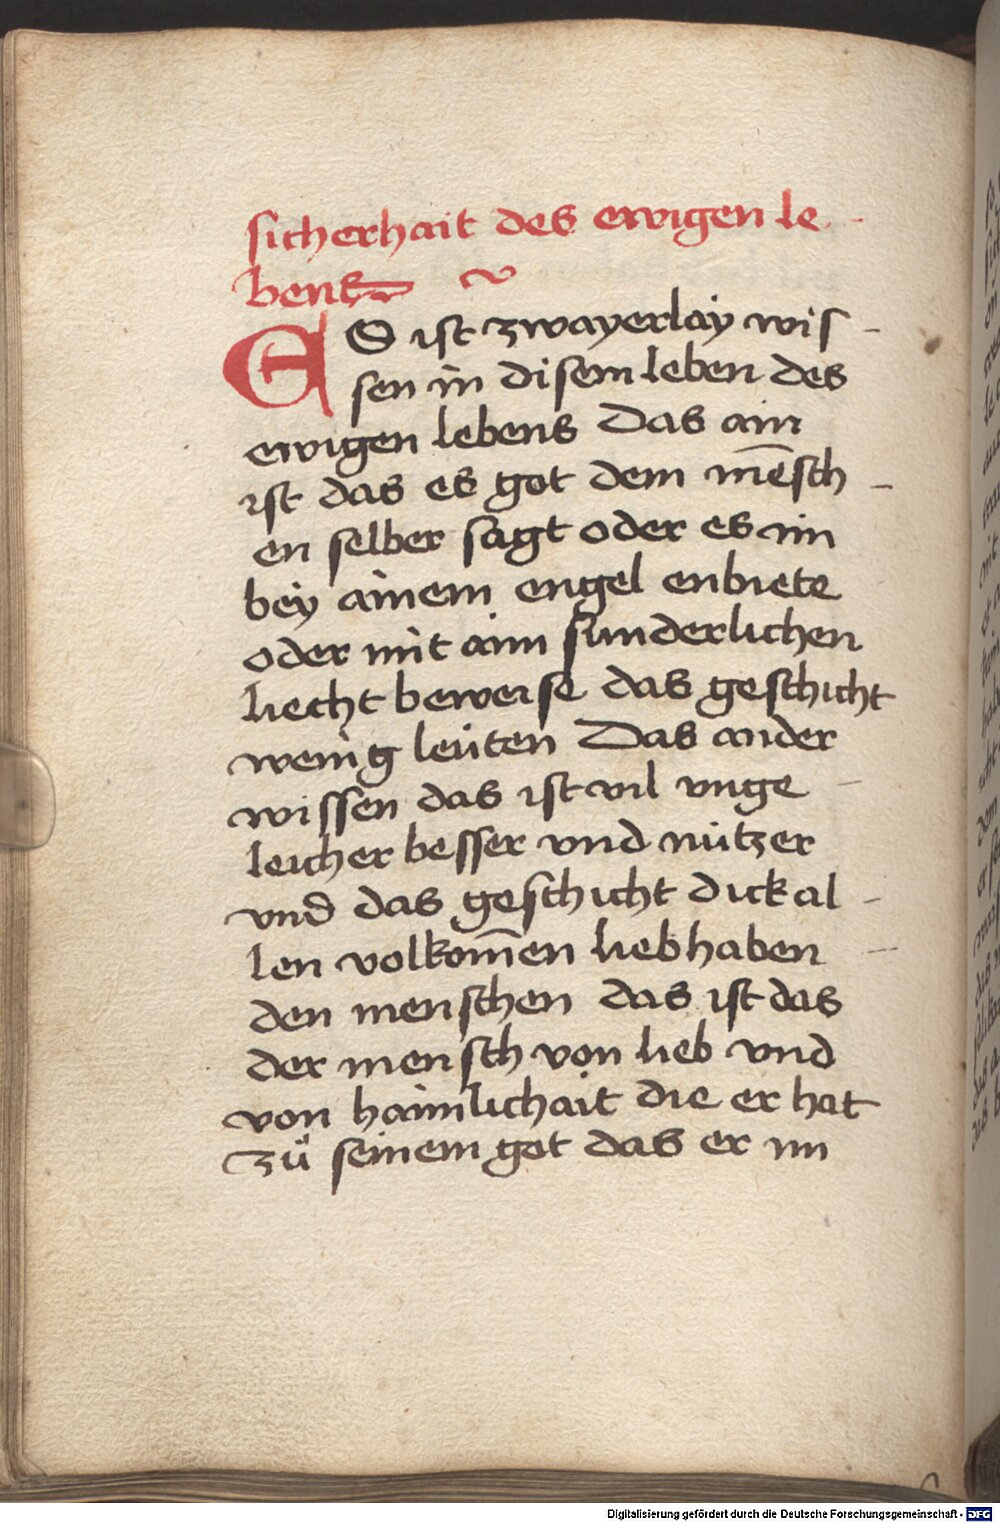 sicherhait des ewigen le-
bens
ES ist zwayerlay wis-
sen in disem leben des
ewigen lebens Das ain
ist das es got dem mēsch-
en selber sagt oder es im
bey ainem engel enbiete
oder mit aim sunderlichen
liecht beweise das geschicht
wenig leüten Das ander
wissen das ist vil vnge
leicher besser vnd nützer
vnd das geschicht dick al-
len volkom̄en liebhaben-
den menschen das ist das
der mensch von lieb vnd
von haimlichait die er hat
zuͦ seinem got das er im
Digitalisierung gefördert durch die Deutsche Forschungsgemeinschaft - DFG